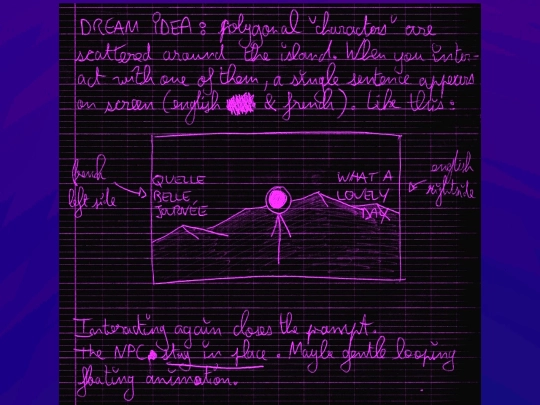 DREAM IDEA: polygonal "characters" are
scattered around the island. When you inter-
act with one of them, a single sentence appears
on screen (english & french). Like this:
french
left side
QUELLE
BELLE
JOURNÉE
WHAT A
LOVELY
DAY
english
right side
Interacting again closes the prompt.
The NPC stay in place. Maybe gentle looping
floating animation.